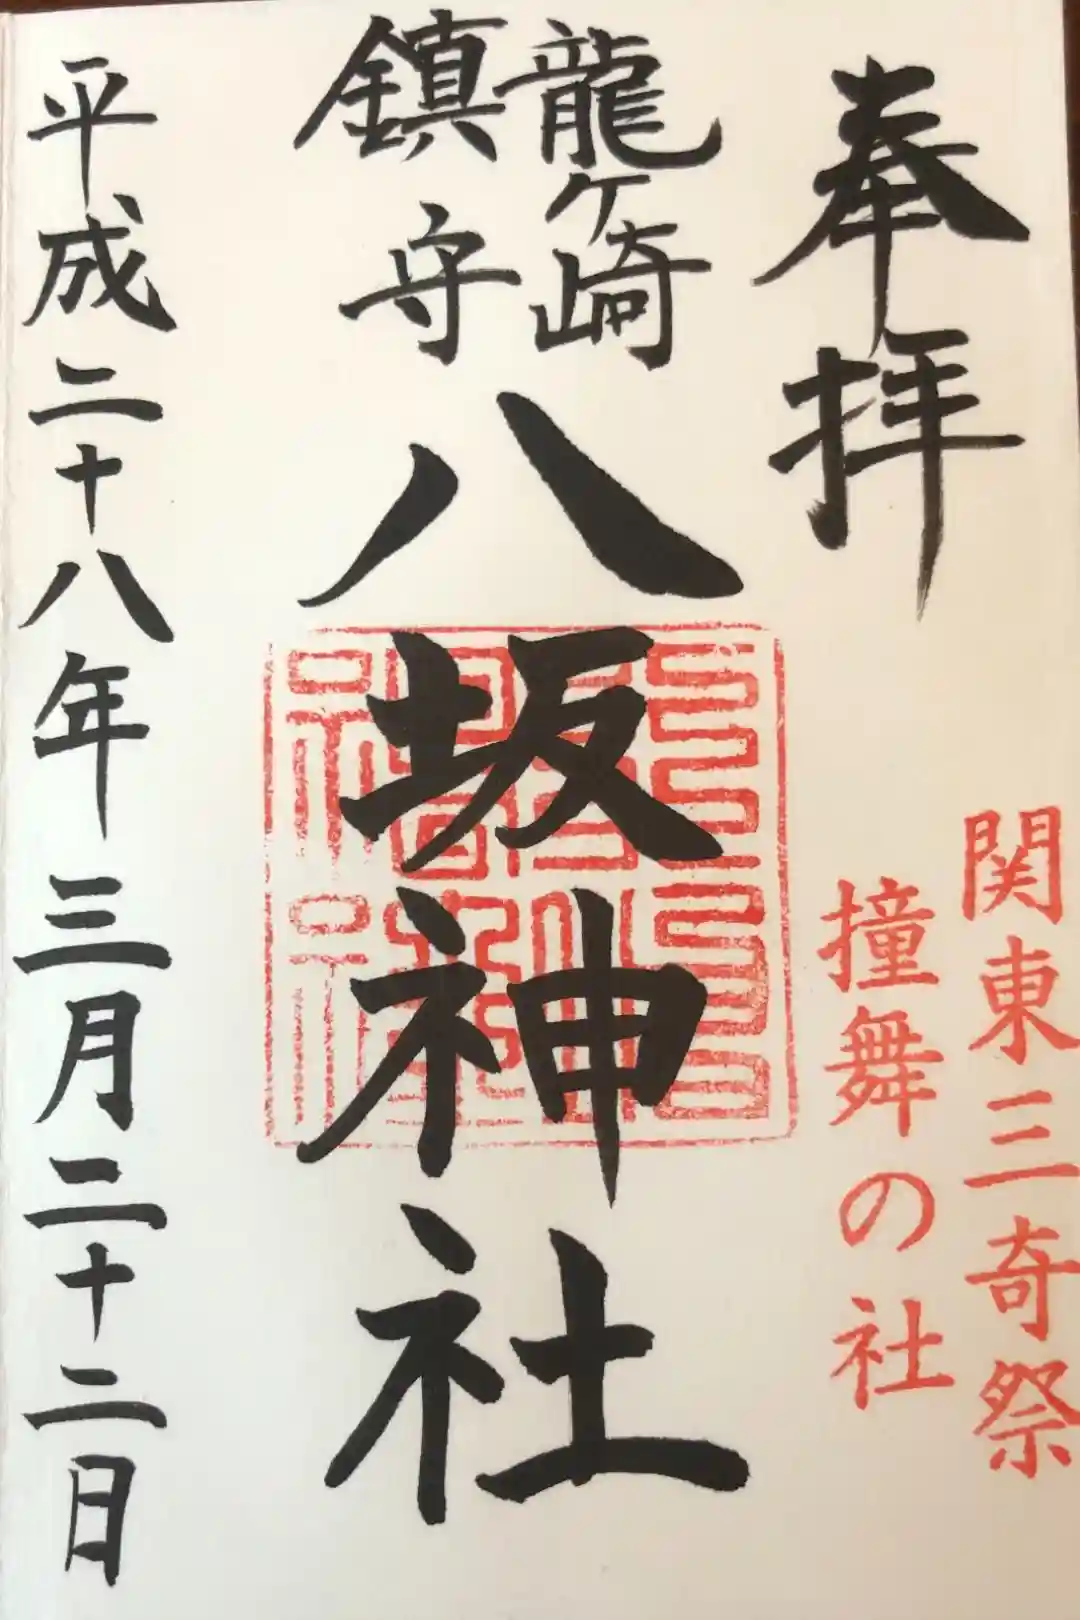 奉拝
関東三奇祭
撞舞の社
龍ヶ崎
鎮守
八坂神社
平成二十八年三月二十二日